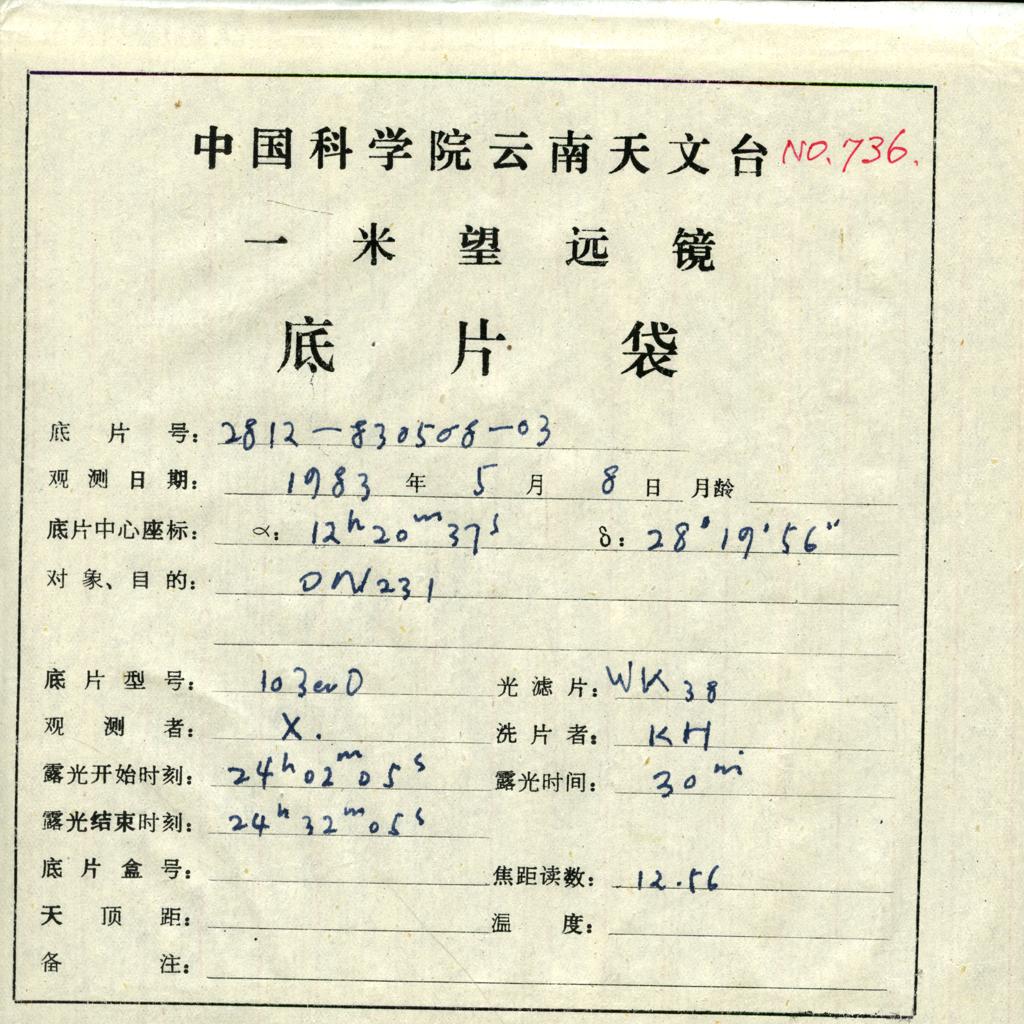 中国科学院云南天文台 NO.736.
一米望远镜
底片袋
底片号: 2812-830508-03
观测日期: 1983 年 5 月 8 日 月龄
底片中心座标: α: 12h20m37s δ: 28°19'56"
对象、目的: ON231
底片型号: 103aO 光滤片: WK38
观测者: X. 洗片者: KH.
露光开始时刻: 24h02m05s 露光时间: 30m
露光结束时刻: 24h32m05s
底片盒号: 焦距读数: 12.56
天顶距: 温度:
备注: